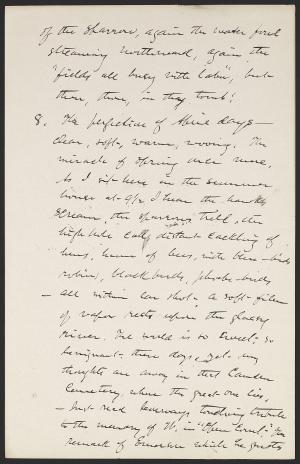 of the Sparrow, again the water fowl
streaming northward, again the
"fields all busy with labor", but
then, then, in thy tomb!
8. The perfection of April days —
clear, soft, warm, wooing. The
miracle of Spring once more.
As I sit here in the summer
house at 9½ I hear the hawks
scream, the sparrows trill, the
high hole call, distant cackling of
hens, hum of bees, with blue-birds
robins, blackbirds, phoebe-birds
— all within ear shot. A soft film
of vapor rests upon the glassy
river. The world is so sweet - so
benignant - these days, yet my
thoughts are away in that Camden
Cemetery, where the great one lies.
— Just read Kennedys touching tribute
to the memory of W. in
remark of Emerson which he quotes